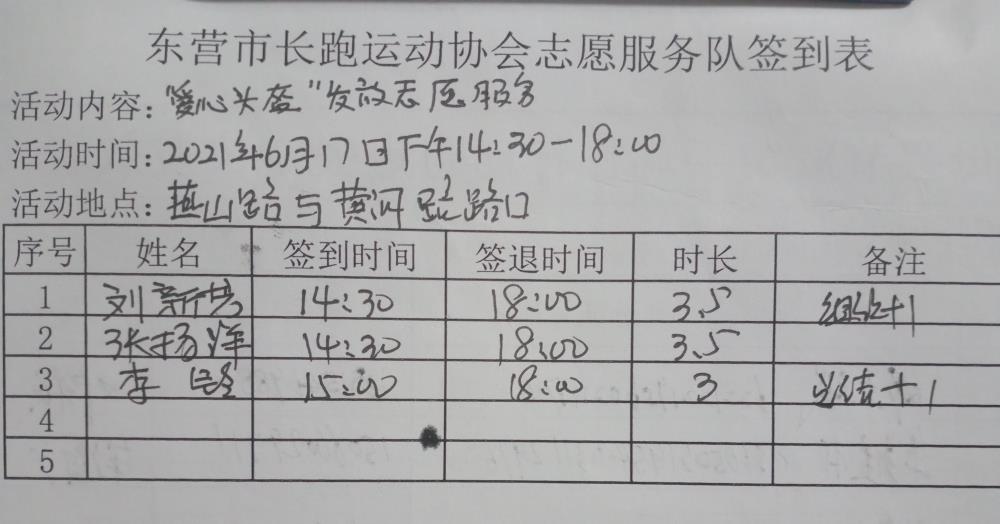 东营市长跑运动协会志愿服务队签到表
活动内容：“爱心头盔”发放志愿服务
活动时间：2021年6月17日下午14:30－18:00
活动地点：燕山路与黄河路路口
序号 姓名 签到时间 签退时间 时长 备注
1 刘新 14:30 18:00 3.5 组织+1
2 张杨洋 14:30 18:00 3.5
3 李 15:00 18:00 3 总结+1
4
5